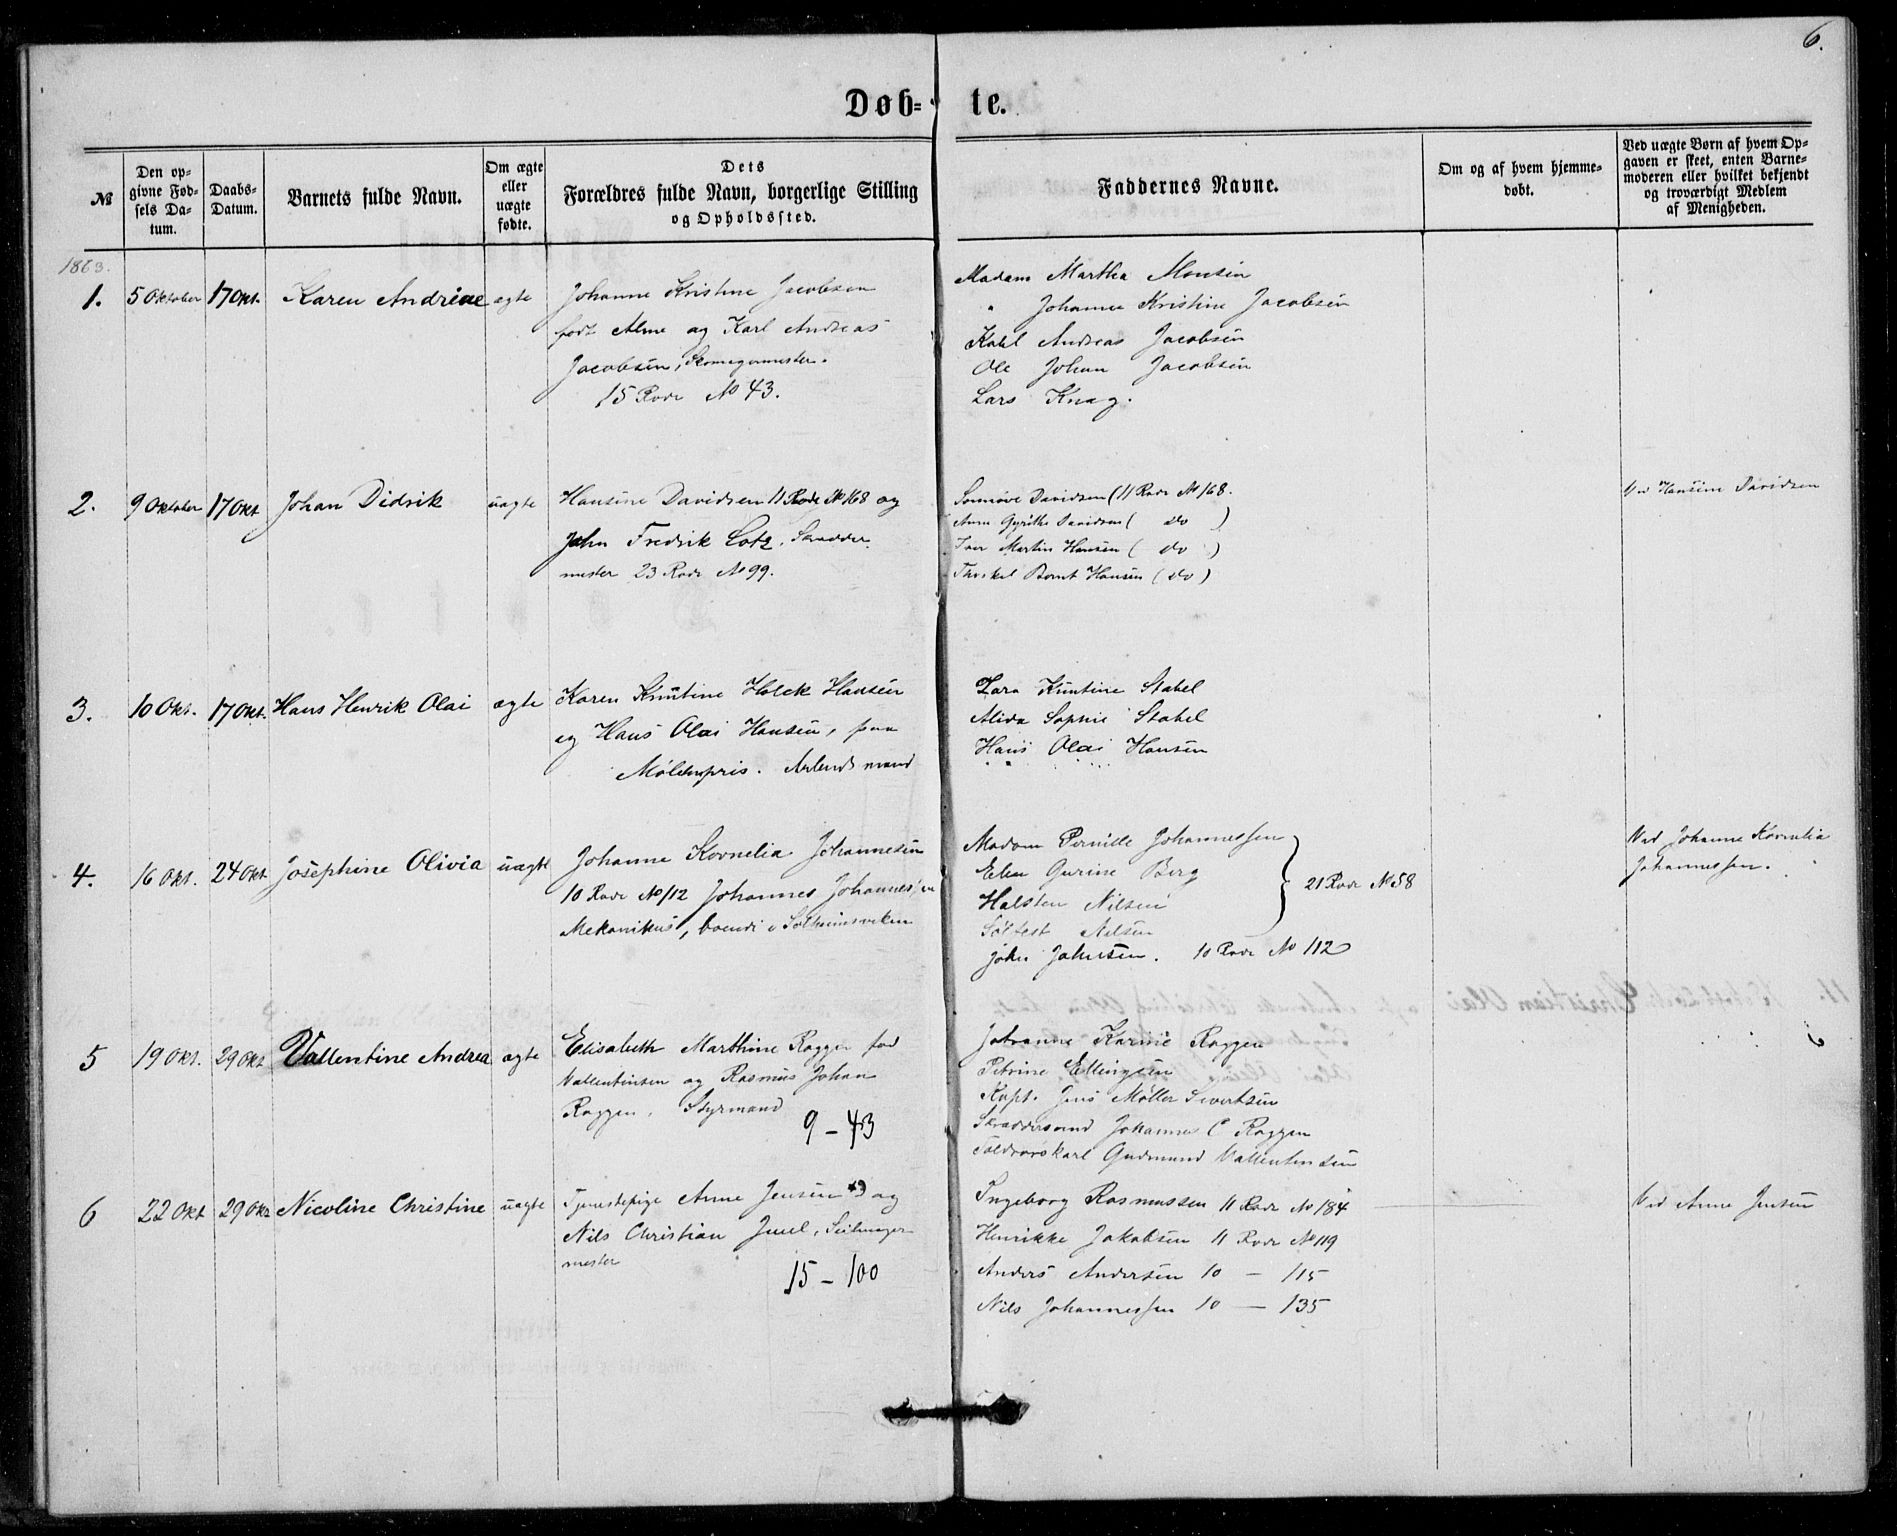 6.
Døb- te.
№
Den op-
givne Fød-
sels Da-
tum.
Daabs-
Datum.
Barnets fulde Navn.
Om ægte
eller
uægte
fødte.
Dets
Forældres fulde Navn, borgerlige Stilling
og Opholdssted.
Faddernes Navne.
Om og af hvem hjemme-
døbt.
Ved uægte Børn af hvem Op-
gaven er skeet, enten Barne-
moderen eller hvilket bekjendt
og troværdigt Medlem
af Menigheden.
1863.
1. 5 Oktober 17 Okt. Karen Andrine ægte
Johanne Kristine Jacobsen
født Alme og Karl Andreas
Jacobsen, Skomagermester.
15 Rode № 43.
Madam Martha Monsen
" Johanne Kristine Jacobsen
Karl Andreas Jacobsen
Ole Johan Jacobsen
Lars Knag.
2. 9 Oktober 17 Okt Johan Didrik uægte
Hansine Davidsen 11 Rode № 168 og
John Fredrik Lotz, Skrædder
mester 23 Rode № 99.
Sonnøve Davidsen (11 Rode № 168.
Anne Gyrithe Davidsen ( do )
Iver Martin Hansen ( do )
Thorkel Bernt Hansen ( do )
Ved Hansine Davidsen
3. 10 Okt. 17 Okt. Hans Henrik Olai ægte
Karen Knutine Holck Hansen
og Hans Olai Hansen, paa
Møhlenpris. Arbeidsmand
Zara Kuntine Stabel
Alida Sophie Stabel
Hans Olai Hansen
4. 16 Okt. 24 Okt Josephine Olivia uægte
Johanne Kornelia Johannesen
10 Rode № 112 Johannes Johannessen
Mekanikus, boende i Solheimsviken
Madam Pernille Johannessen
Elen Gurine Berg
Halsten Nilsen
21 Rode № 58
Nilsen
John Johnsen. 10 Rode № 112
Ved Johanne Kornelia
Johannessen.
5 19 Okt. 29 Okt Vallentine Andrea ægte
Elisabeth Marthine Raggen fød
Vallentinsen og Rasmus Johan
Raggen. Styrmand
9 – 43
Johanne Karine Raggen
Petrine Ellingsen
Kapt. Jens Møller Sivertsen
Skræddersvend Johannes C Raggen
Toldrorskarl Gudmund Vallentinsen
6 22 Okt 29 Okt Nicoline Christine uægte
Tjenestepige Anne Jensen og
Nils Christian Juul, Seilmager
mester
15 – 100
Ingeborg Rasmussen 11 Rode № 184
Henrikke Jakobsen 11 Rode № 119
Anders Andersen 10 — 115
Nils Johannessen 10 — 135
Ved Anne Jensen